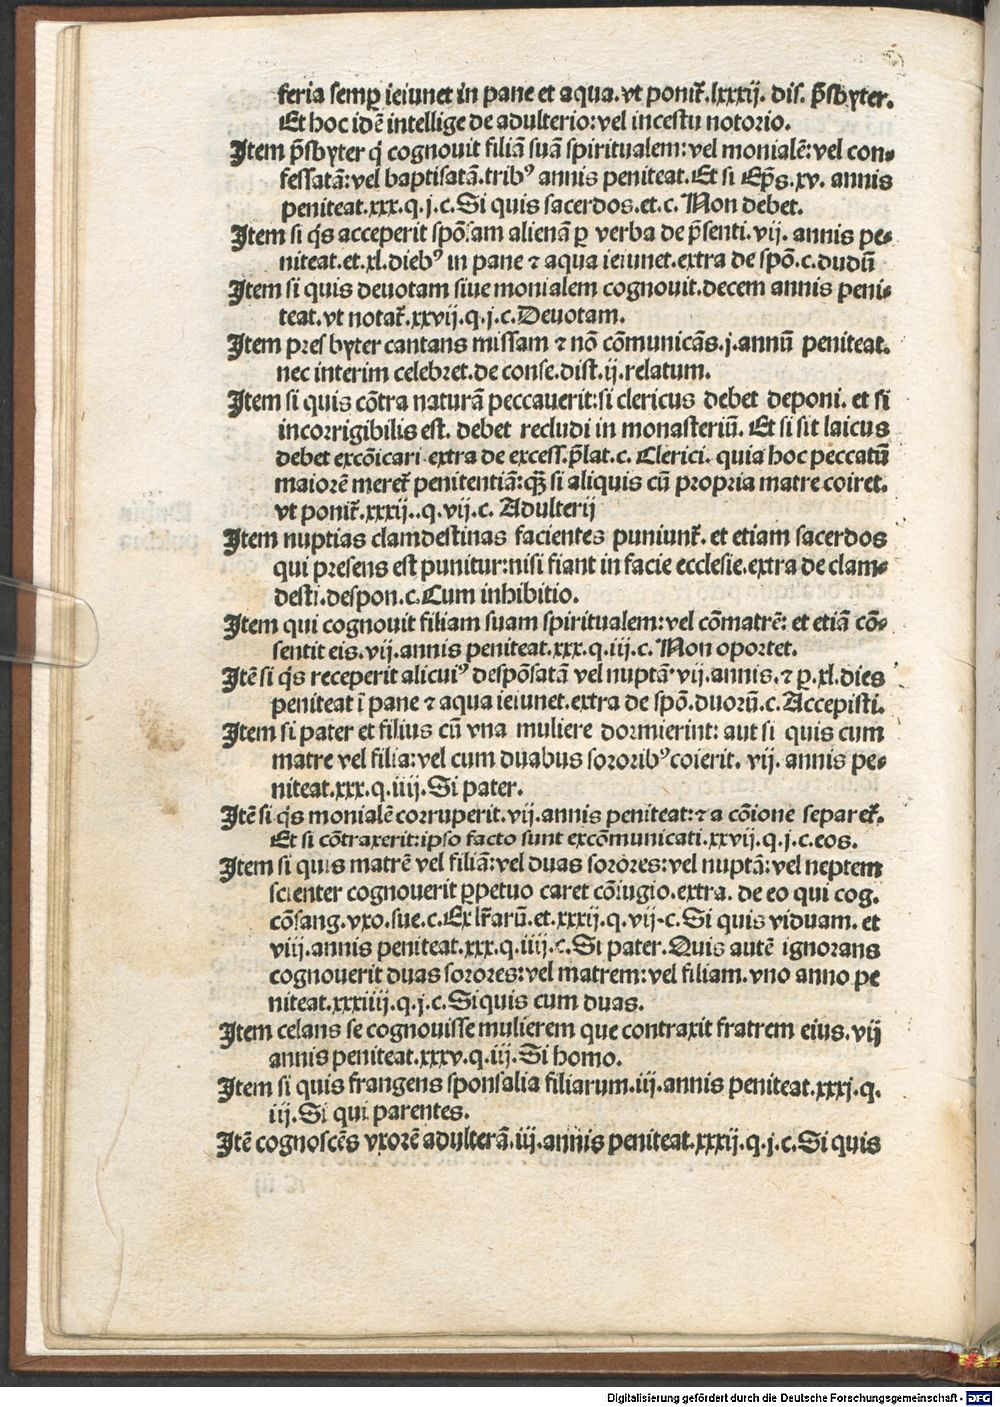 feria semꝑ ieiunet in pane et aqua. vt ponit᷑.lxxxij. dis. p̃sbyter.
Et hoc idẽ intellige de adulterio: vel incestu notorio.
Item p̃sbyter q̇ cognouit filiã suã spiritualem: vel monialẽ: vel con-
fessatã: vel baptisatã. tribꝰ annis peniteat. Et si Ep̃s. xv. annis
peniteat. xxx. q. j. c. Si quis sacerdos. et. c. Non debet.
Item si q̇s acceperit spõsam alienã ꝑ verba de p̃senti. vij. annis pe-
niteat. et. xl. diebꝰ in pane ⁊ aqua ieiunet. extra de spõ. c. dudũ
Item si quis deuotam siue monialem cognouit. decem annis peni-
teat. vt notat᷑. xxvij. q. j. c. Deuotam.
Item presbyter cantans missam ⁊ nõ cõmunicãs. j. annũ peniteat.
nec interim celebret. de conse. dist. ij. relatum.
Item si quis cõtra naturã peccauerit: si clericus debet deponi. et si
incorrigibilis est. debet recludi in monasteriũ. Et si sit laicus
debet excõicari extra de excess. p̃lat. c. Clerici. quia hoc peccatũ
maiorẽ meret᷑ penitentiã: q̃ꝫ si aliquis cũ propria matre coiret.
vt ponit᷑. xxxij.. q. vij. c. Adulterij
Item nuptias clamdestinas facientes puniunt᷑. et etiam sacerdos
qui presens est punitur: nisi fiant in facie ecclesie. extra de clam-
desti. despon. c. Cum inhibitio.
Item qui cognouit filiam suam spiritualem: vel cõmatrẽ: et etiã cõ-
sentit eis. vij. annis peniteat. xxx. q. iij. c. Non oportet.
Itẽ si q̇s receperit alicuiꝰ despõsatã vel nuptã vij. annis. ⁊ ꝑ. xl. dies
peniteat ĩ pane ⁊ aqua ieiunet. extra de spõ. duorũ. c. Accepisti.
Item si pater et filius cũ vna muliere dormierint: aut si quis cum
matre vel filia: vel cum duabus sororibꝰ coierit. vij. annis pe-
niteat. xxx. q. iiij. Si pater.
Itẽ si q̇s monialẽ corruperit. vij. annis peniteat: ⁊ a cõione separet᷑.
Et si cõtraxerit: ipso facto sunt excõmunicati. xxvij. q. j. c. eos.
Item si quis matrẽ vel filiã: vel duas sorores: vel nuptã: vel neptem
scienter cognouerit ꝑpetuo caret cõiugio. extra. de eo qui cog.
cõsang. vxo. sue. c. Ex lr̃arũ. et. xxxij. q. vij. c. Si quis viduam. et
viij. annis peniteat. xxx. q. iiij. c. Si pater. Quis autẽ ignorans
cognouerit duas sorores: vel matrem: vel filiam. vno anno pe
niteat. xxxiiij. q. j. c. Si quis cum duas.
Item celans se cognouisse mulierem que contraxit fratrem eius. vij
annis peniteat. xxxv. q. iij. Si homo.
Item si quis frangens sponsalia filiarum. iij. annis peniteat. xxxj. q.
iij. Si qui parentes.
Itẽ cognoscẽs vxorẽ adulterã. iij. annis peniteat. xxxij. q. j. c. Si quis
Digitalisierung gefördert durch die Deutsche Forschungsgemeinschaft - DFG